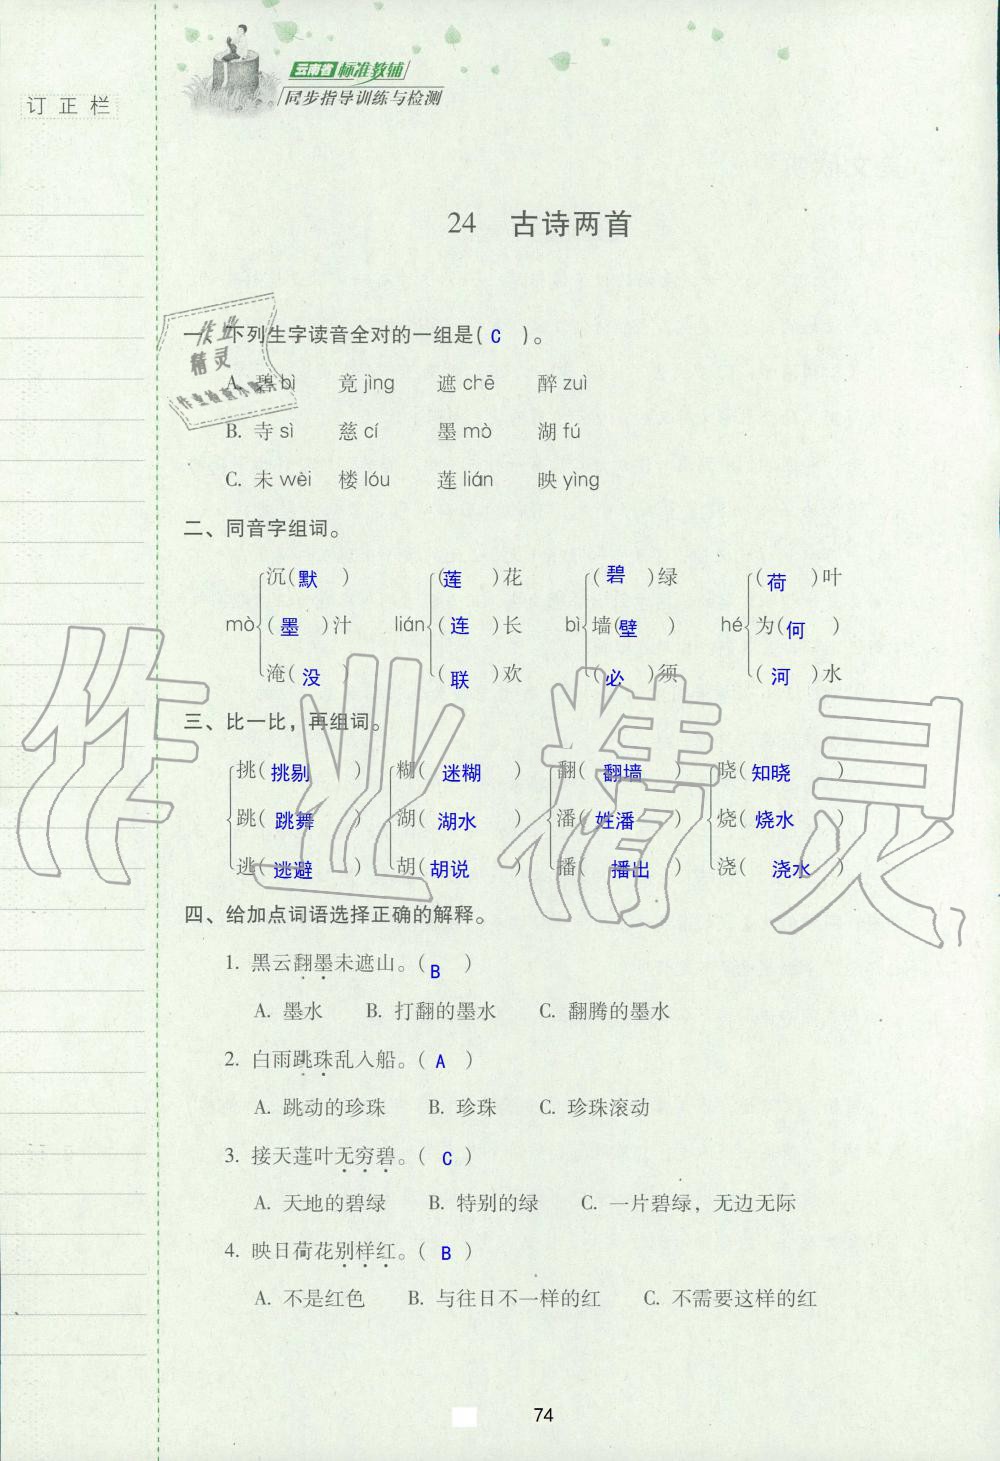 云南省标准教辅
同步指导训练与检测
订正栏
24 古诗两首
一、下列生字读音全对的一组是( C )。
A. 碧bì 竟jìng 遮chē 醉zuì
B. 寺sì 慈cí 墨mò 湖fú
C. 未wèi 楼lóu 莲lián 映yìng
二、同音字组词。
沉(默) (莲)花 (碧)绿 (荷)叶
mò (墨)汁 lián (连)长 bì 墙(壁) hé 为(何)
淹(没) (联)欢 (必)须 (河)水
三、比一比，再组词。
挑(挑剔) 糊(迷糊) 翻(翻墙) 晓(知晓)
跳(跳舞) 湖(湖水) 潘(姓潘) 烧(烧水)
逃(逃避) 胡(胡说) 播(播出) 浇(浇水)
四、给加点词语选择正确的解释。
1. 黑云翻墨未遮山。( B )
A. 墨水 B. 打翻的墨水 C. 翻腾的墨水
2. 白雨跳珠乱入船。( A )
A. 跳动的珍珠 B. 珍珠 C. 珍珠滚动
3. 接天莲叶无穷碧。( C )
A. 天地的碧绿 B. 特别的绿 C. 一片碧绿，无边无际
4. 映日荷花别样红。( B )
A. 不是红色 B. 与往日不一样的红 C. 不需要这样的红
74
作业精灵
作业
精灵